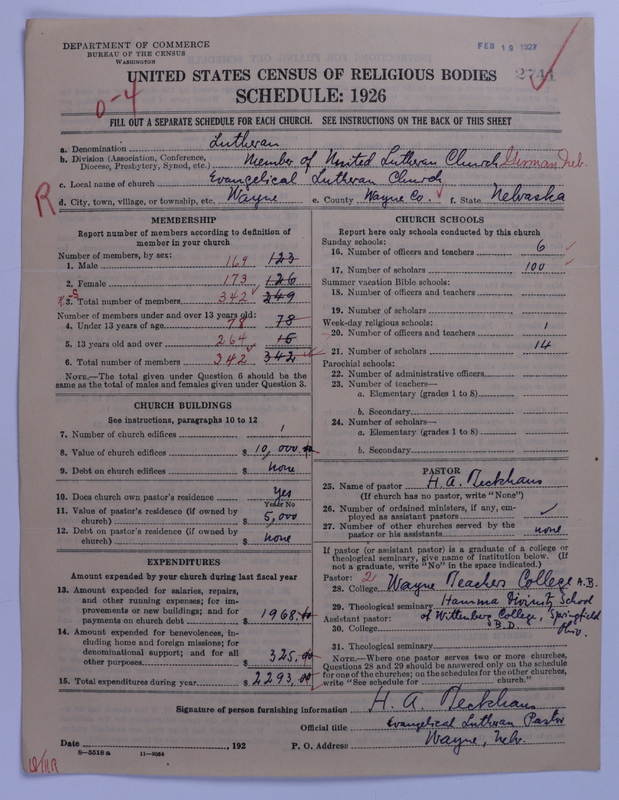 DEPARTMENT OF COMMERCE
BUREAU OF THE CENSUS
WASHINGTON
FEB 19 1927
2741
UNITED STATES CENSUS OF RELIGIOUS BODIES
SCHEDULE: 1926
0-4
FILL OUT A SEPARATE SCHEDULE FOR EACH CHURCH. SEE INSTRUCTIONS ON THE BACK OF THIS SHEET
a. Denomination Lutheran
b. Division (Association, Conference, Diocese, Presbytery, Synod, etc.) Member of United Lutheran Church German Neb.
c. Local name of church Evangelical Lutheran Church
R
d. City, town, village, or township, etc. Wayne e. County Wayne Co. f. State Nebraska
MEMBERSHIP
Report number of members according to definition of
member in your church
Number of members, by sex:
1. Male 169 123
2. Female 173 126
3. Total number of members 342 249
Number of members under and over 13 years old:
4. Under 13 years of age 78 78
5. 13 years old and over 264 16
6. Total number of members 342 342
NOTE.—The total given under Question 6 should be the
same as the total of males and females given under Question 3.
CHURCH BUILDINGS
See instructions, paragraphs 10 to 12
7. Number of church edifices 1
8. Value of church edifices $ 10,000.00
9. Debt on church edifices $ none
10. Does church own pastor's residence yes
Yes or No
11. Value of pastor's residence (if owned by
church) $ 5,000
12. Debt on pastor's residence (if owned by
church) $ none
EXPENDITURES
Amount expended by your church during last fiscal year
13. Amount expended for salaries, repairs,
and other running expenses; for im-
provements or new buildings; and for
payments on church debt $ 1968.00
14. Amount expended for benevolences, in-
cluding home and foreign missions; for
denominational support; and for all
other purposes $ 325.00
15. Total expenditures during year $ 2293.00
CHURCH SCHOOLS
Report here only schools conducted by this church
Sunday schools:
16. Number of officers and teachers 6
17. Number of scholars 100
Summer vacation Bible schools:
18. Number of officers and teachers
19. Number of scholars
Week-day religious schools:
20. Number of officers and teachers 1
21. Number of scholars 14
Parochial schools:
22. Number of administrative officers
23. Number of teachers—
a. Elementary (grades 1 to 8)
b. Secondary
24. Number of scholars—
a. Elementary (grades 1 to 8)
b. Secondary
PASTOR
25. Name of pastor H. A. Teckhaus
(If church has no pastor, write "None")
26. Number of ordained ministers, if any, em-
ployed as assistant pastors
27. Number of other churches served by the
pastor or his assistants none
If pastor (or assistant pastor) is a graduate of a college or
theological seminary, give name of institution below. (If
not a graduate, write "No" in the space indicated.)
Pastor: 2
28. College Wayne Teachers College A.B.
29. Theological seminary Hamma Divinity School
Assistant pastor: of Wittenberg College, Springfield
30. College B.D. Ohio.
31. Theological seminary
NOTE.—Where one pastor serves two or more churches,
Questions 28 and 29 should be answered only on the schedule
for one of the churches; on the schedules for the other churches,
write "See schedule for church."
Signature of person furnishing information H. A. Teckhaus
Official title Evangelical Lutheran Pastor
Date , 192 P. O. Address Wayne, Nebr.
8—5518a 11—9084